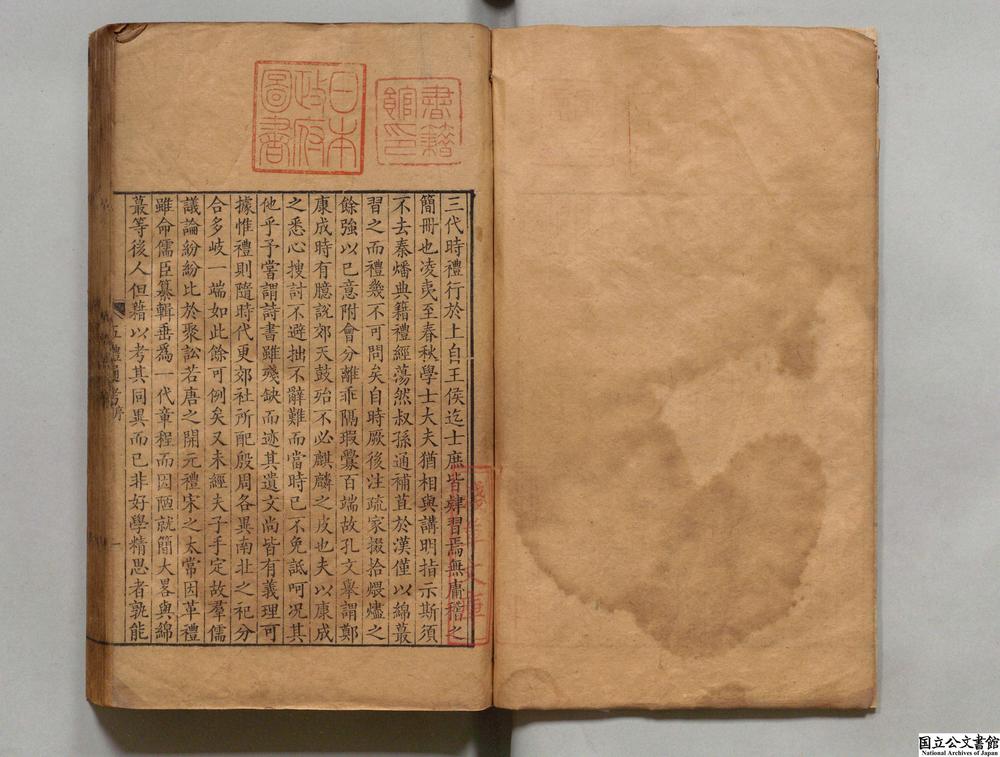 三代時禮行於上自王侯迄士庶皆肄習焉無庸稽之
簡冊也凌夷至春秋學士大夫猶相與講明指示斯須
不去秦燔典籍禮經蕩然叔孫通補苴於漢僅以綿蕞
習之而禮幾不可問矣自時厥後注疏家掇拾煨燼之
餘強以已意附會分離乖隔瑕釁百端故孔文舉謂鄭
康成時有臆說郊天鼓殆不必麒麟之皮也夫以康成
之悉心搜討不避拙不辭難而當時已不免詆呵况其
他乎予嘗謂詩書雖殘缺而迹其遺文尚皆有義理可
據惟禮則隨時代更郊社所配殷周各異南北之祀分
合多岐一端如此餘可例矣又未經夫子手定故羣儒
議論紛紛比於聚訟若唐之開元禮宋之太常因革禮
雖命儒臣纂輯垂爲一代章程而因陋就簡大畧與綿
蕞等後人但藉以考其同異而已非好學精思者孰能
五禮通考序
一
書籍館印
日本政府圖書
淺草文庫
国立公文書館
National Archives of Japan